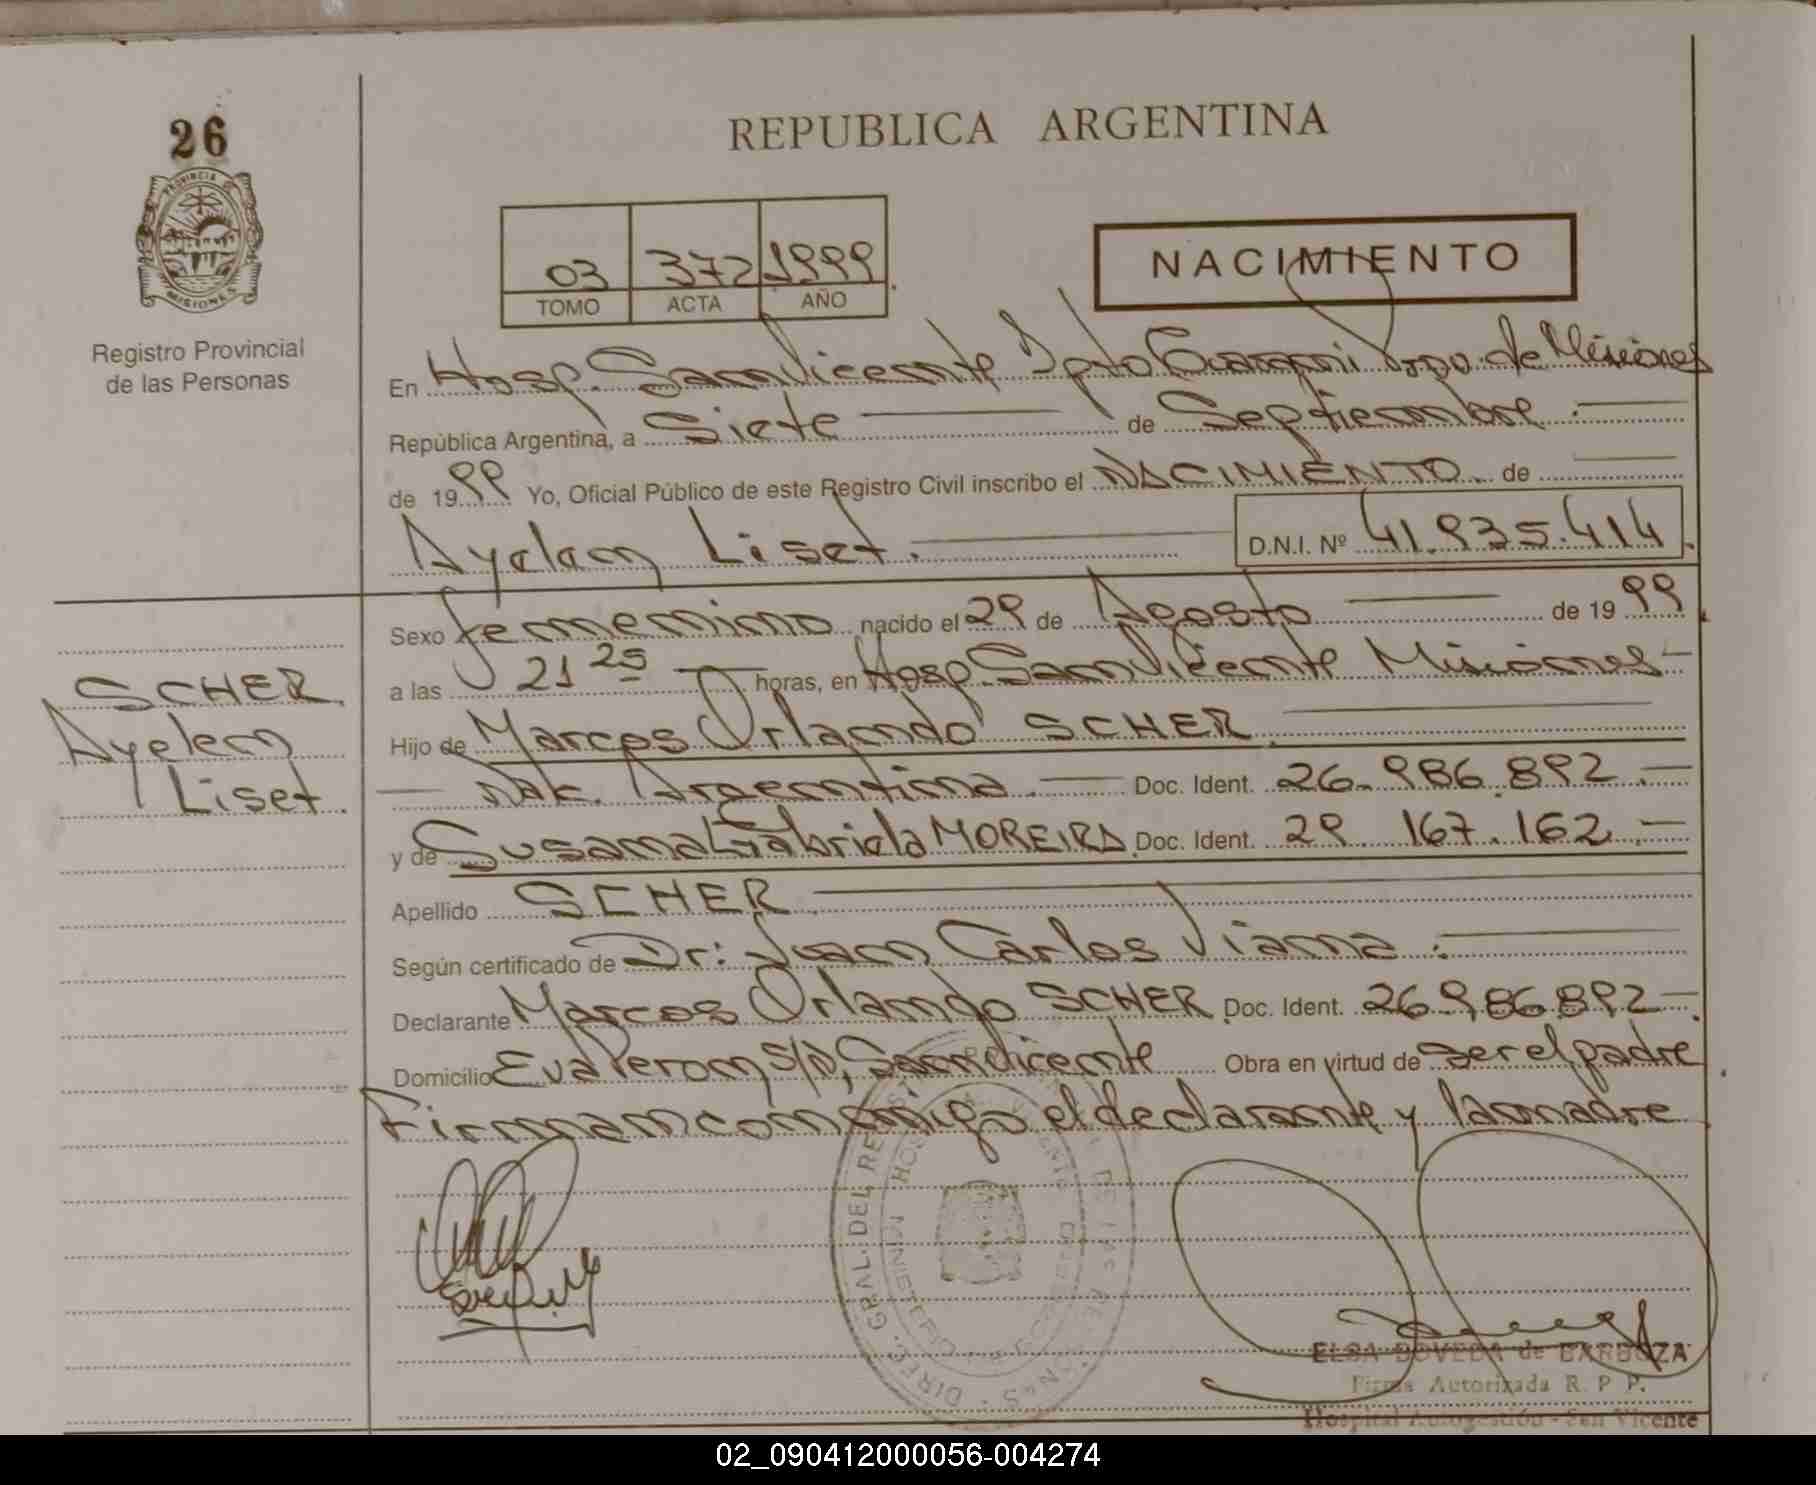 26
PROVINCIA DE
MISIONES
Registro Provincial
de las Personas
REPUBLICA ARGENTINA
03 372 1999
TOMO ACTA AÑO
NACIMIENTO
En Hosp. San Vicente Dpto Guarani Prov. de Misiones
República Argentina, a Siete de Septiembre
de 1999 Yo, Oficial Público de este Registro Civil inscribo el NACIMIENTO de
Ayelen Liset. D.N.I. Nº 41.935.414
Sexo femenino nacido el 29 de Agosto de 1999
a las 21 25 horas, en Hosp. San Vicente Misiones
Hijo de Marcos Orlando SCHER
Nac. Argentina. Doc. Ident. 26.986.892
y de Susana Gabriela MOREIRA Doc. Ident. 29.167.162
Apellido SCHER
Según certificado de Dr: Juan Carlos Viana
Declarante Marcos Orlando SCHER Doc. Ident. 26.986.892
Domicilio Eva Peron S/N, San Vicente Obra en virtud de ser el padre
Firman conmigo el declarante y la madre
SCHER
Ayelen
Liset
DIREC. GRAL. DEL REGIST
MINISTERIO
ELSA DOVEDA de BARBOZA
Firma Autorizada R. P. P.
Hospital Autogestión - San Vicente
02_090412000056-004274